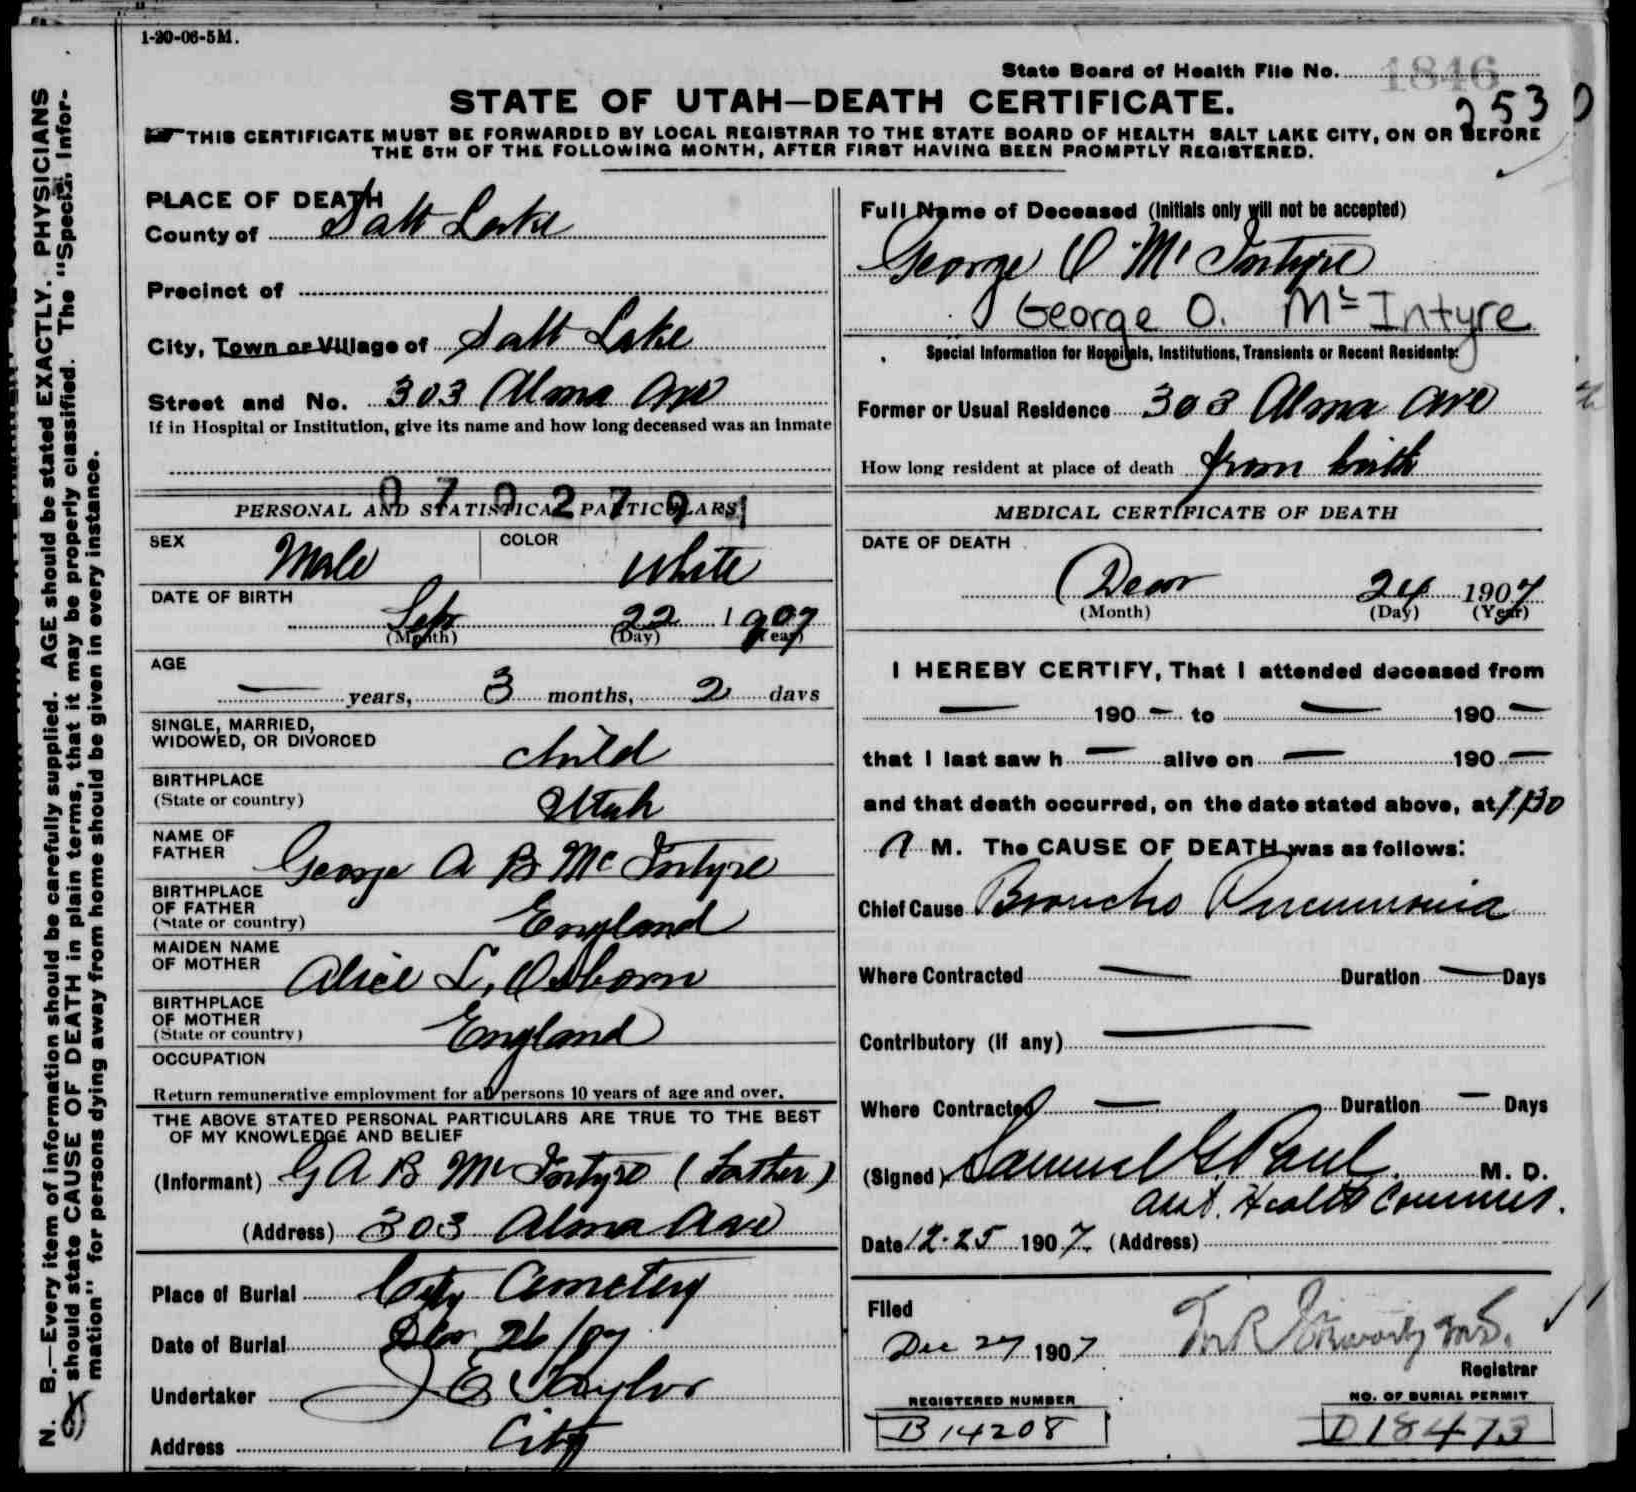 1-20-06-5M.
State Board of Health File No. 1846
2530
STATE OF UTAH—DEATH CERTIFICATE.
THIS CERTIFICATE MUST BE FORWARDED BY LOCAL REGISTRAR TO THE STATE BOARD OF HEALTH SALT LAKE CITY, ON OR BEFORE
THE 5TH OF THE FOLLOWING MONTH, AFTER FIRST HAVING BEEN PROMPTLY REGISTERED.
N. B.—Every item of information should be carefully supplied. AGE should be stated EXACTLY. PHYSICIANS
should state CAUSE OF DEATH in plain terms, that it may be properly classified. The "Special Infor-
mation" for persons dying away from home should be given in every instance.
PLACE OF DEATH
County of Salt Lake
Precinct of
City, Town or Village of Salt Lake
Street and No. 303 Alma Ave
If in Hospital or Institution, give its name and how long deceased was an inmate
0702791
PERSONAL AND STATISTICAL PARTICULARS
SEX Male COLOR White
DATE OF BIRTH
Sep 22 1907
(Month) (Day) (Year)
AGE
— years, 3 months, 2 days
SINGLE, MARRIED,
WIDOWED, OR DIVORCED child
BIRTHPLACE
(State or country) Utah
NAME OF
FATHER George A B McIntyre
BIRTHPLACE
OF FATHER
(State or country) England
MAIDEN NAME
OF MOTHER Alice L. Osborn
BIRTHPLACE
OF MOTHER
(State or country) England
OCCUPATION
Return remunerative employment for all persons 10 years of age and over.
THE ABOVE STATED PERSONAL PARTICULARS ARE TRUE TO THE BEST
OF MY KNOWLEDGE AND BELIEF
(Informant) G A B McIntyre (Father)
(Address) 303 Alma Ave
Place of Burial City Cemetery
Date of Burial Dec 26/07
Undertaker J E Taylor
Address City
Full Name of Deceased (Initials only will not be accepted)
George O McIntyre
George O. McIntyre
Special Information for Hospitals, Institutions, Transients or Recent Residents:
Former or Usual Residence 303 Alma Ave
How long resident at place of death from birth
MEDICAL CERTIFICATE OF DEATH
DATE OF DEATH
Decr 24 1907
(Month) (Day) (Year)
I HEREBY CERTIFY, That I attended deceased from
— 190 — to — 190 —
that I last saw h — alive on — 190 —
and that death occurred, on the date stated above, at 1.30
A M. The CAUSE OF DEATH was as follows:
Chief Cause Broncho Pneumonia
Where Contracted — Duration — Days
Contributory (if any) —
Where Contracted — Duration — Days
(Signed) Samuel G. Paul M. D.
Asst. Health Commis.
Date 12-25 1907. (Address)
Filed
Dec 27 1907
Registrar
REGISTERED NUMBER
B 14208
NO. OF BURIAL PERMIT
D18473